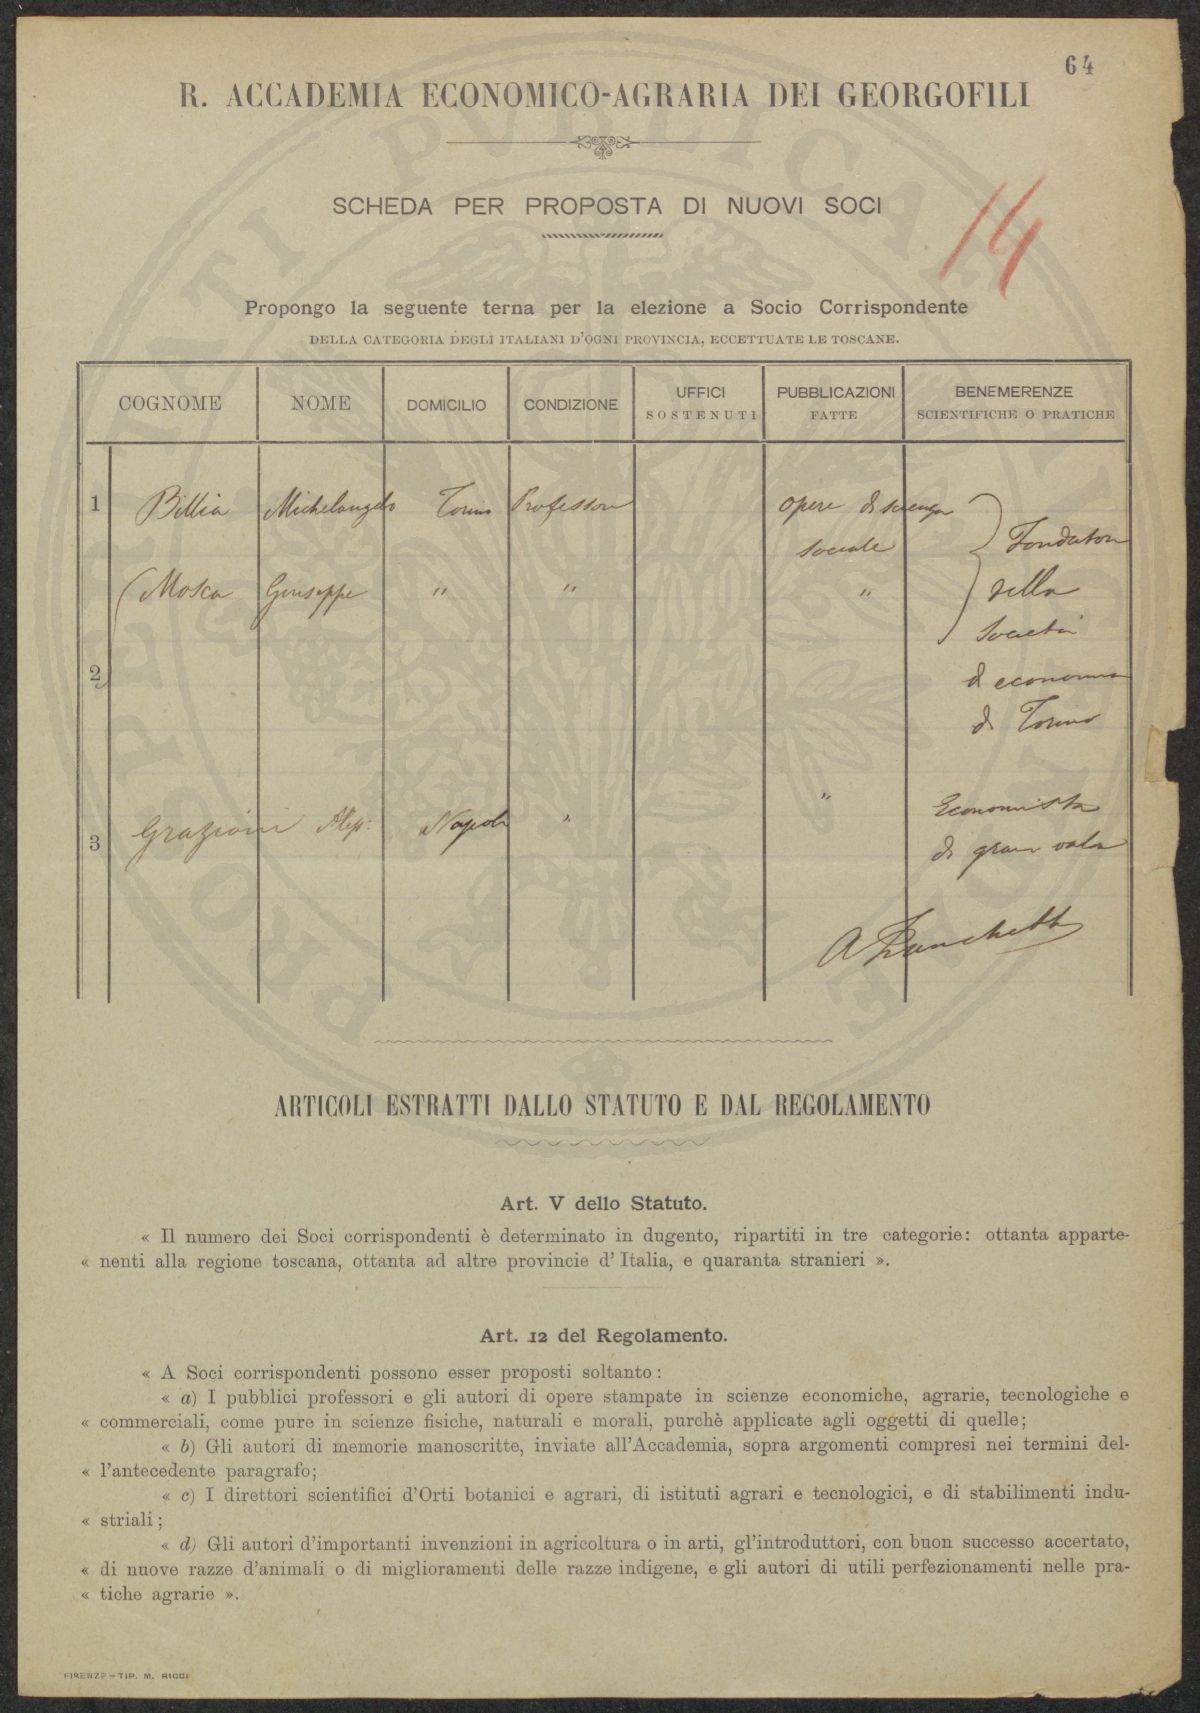 64
R. ACCADEMIA ECONOMICO-AGRARIA DEI GEORGOFILI
SCHEDA PER PROPOSTA DI NUOVI SOCI
14
Propongo la seguente terna per la elezione a Socio Corrispondente
DELLA CATEGORIA DEGLI ITALIANI D'OGNI PROVINCIA, ECCETTUATE LE TOSCANE.
COGNOME NOME DOMICILIO CONDIZIONE UFFICI SOSTENUTI PUBBLICAZIONI FATTE BENEMERENZE SCIENTIFICHE O PRATICHE
1 Billia Michelangelo Torino Professore opere di scienza
sociale Fondatori
Mosca Giuseppe " " " della
Società
2 di economia
di Torino
3 Graziani Aless: Napoli " " Economista
di gran valore
A
PROSPERITATI PUBLICAE AUGENDAE
ARTICOLI ESTRATTI DALLO STATUTO E DAL REGOLAMENTO
Art. V dello Statuto.
« Il numero dei Soci corrispondenti è determinato in dugento, ripartiti in tre categorie: ottanta apparte-
« nenti alla regione toscana, ottanta ad altre provincie d'Italia, e quaranta stranieri ».
Art. 12 del Regolamento.
« A Soci corrispondenti possono esser proposti soltanto:
« a) I pubblici professori e gli autori di opere stampate in scienze economiche, agrarie, tecnologiche e
« commerciali, come pure in scienze fisiche, naturali e morali, purchè applicate agli oggetti di quelle;
« b) Gli autori di memorie manoscritte, inviate all'Accademia, sopra argomenti compresi nei termini del-
« l'antecedente paragrafo;
« c) I direttori scientifici d'Orti botanici e agrari, di istituti agrari e tecnologici, e di stabilimenti indu-
« striali;
« d) Gli autori d'importanti invenzioni in agricoltura o in arti, gl'introduttori, con buon successo accertato,
« di nuove razze d'animali o di miglioramenti delle razze indigene, e gli autori di utili perfezionamenti nelle pra-
« tiche agrarie ».
FIRENZE – TIP. M. RICCI